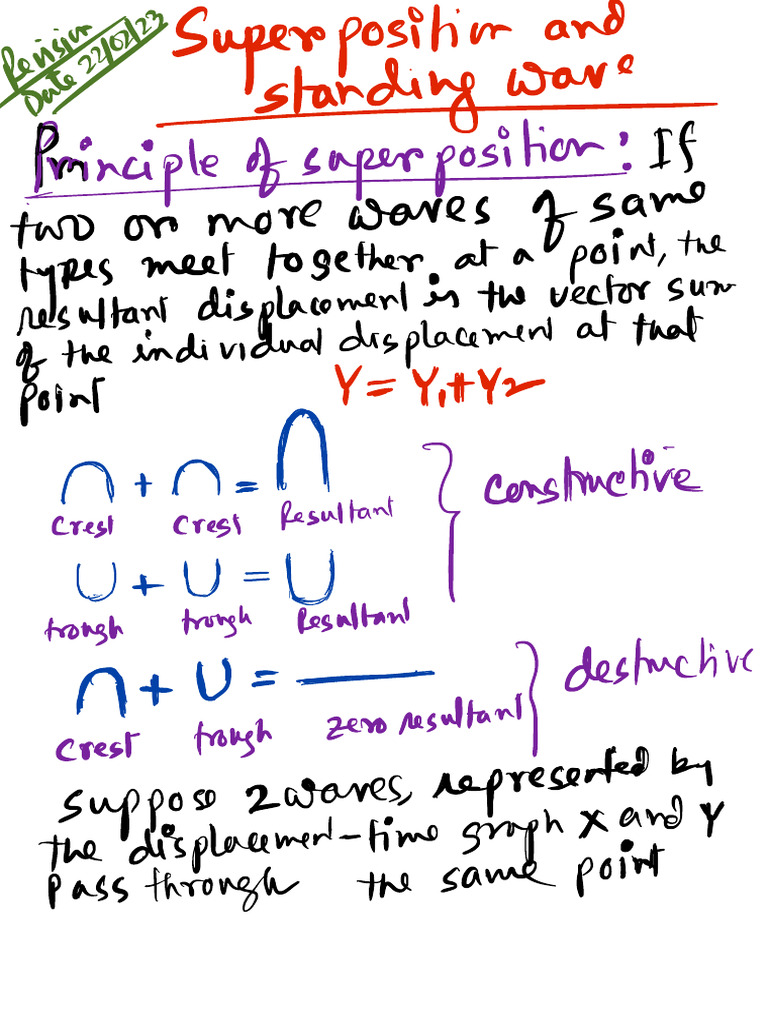 Revision
Date 22/02/23
Superposition and
standing wave
Principle of superposition: If
two or more waves of same
types meet together at a point, the
resultant displacement is the vector sum
of the individual displacement at that
point
Y = Y₁+Y₂
∩ + ∩ = ∩
Crest Crest Resultant
constructive
U + U = U
trough trough Resultant
∩ + U = —
destructive
Crest trough zero resultant
Suppose 2 waves, represented by
the displacement-time graph X and Y
pass through the same point